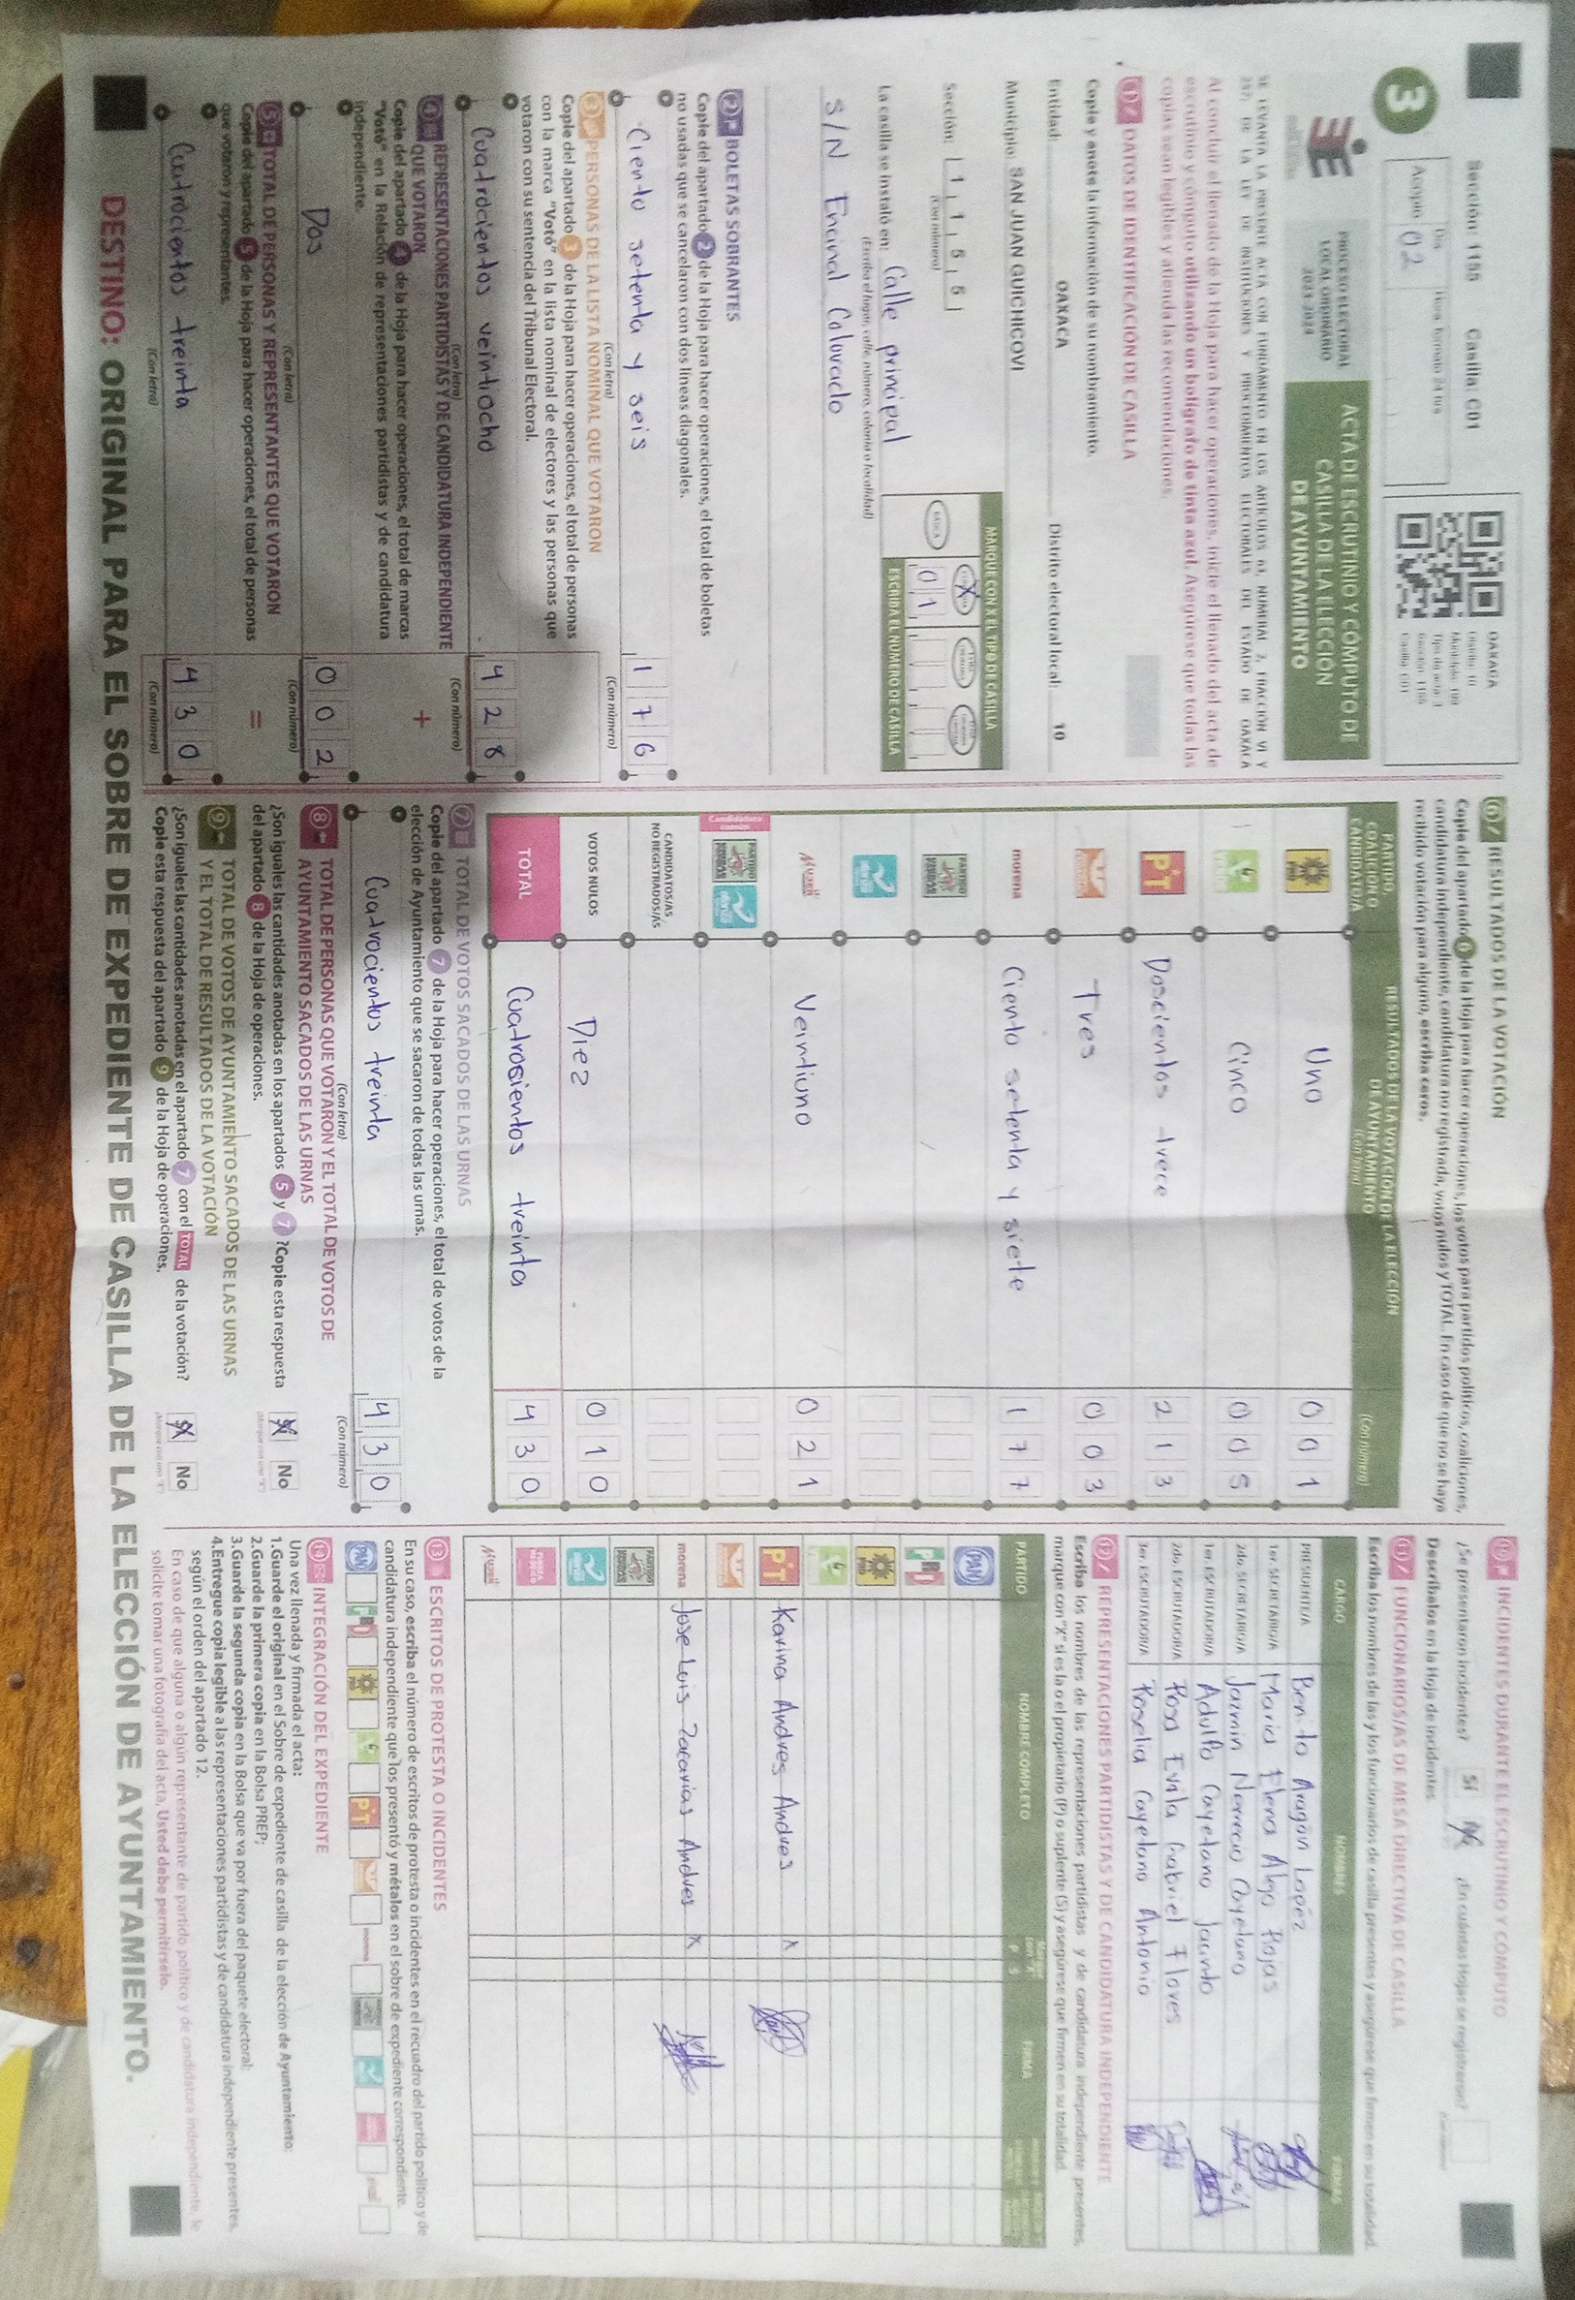 Sección: 1155 Casilla: C01
3
Acopio
02
Día
Hora: formato 24 hrs
OAXACA
Distrito: 10
Municipio: 199
Tipo de acta: 3
Sección: 1155
Casilla: C01
PROCESO ELECTORAL
LOCAL ORDINARIO
2023-2024
ACTA DE ESCRUTINIO Y CÓMPUTO DE
CASILLA DE LA ELECCIÓN
DE AYUNTAMIENTO
SE LEVANTA LA PRESENTE ACTA CON FUNDAMENTO EN LOS ARTÍCULOS 63, NUMERAL 2, FRACCIÓN VI Y
237; DE LA LEY DE INSTITUCIONES Y PROCEDIMIENTOS ELECTORALES DEL ESTADO DE OAXACA
Al concluir el llenado de la Hoja para hacer operaciones, inicie el llenado del acta de
escrutinio y cómputo utilizando un bolígrafo de tinta azul. Asegúrese que todas las
copias sean legibles y atienda las recomendaciones.
1 DATOS DE IDENTIFICACIÓN DE CASILLA
Copie y anote la información de su nombramiento.
Entidad: OAXACA Distrito electoral local: 10
Municipio: SAN JUAN GUICHICOVI
Sección: 1 1 5 5
(Con número)
MARQUE CON X EL TIPO DE CASILLA
BÁSICA
X
ESCRIBA EL NÚMERO DE CASILLA
0 1
La casilla se instaló en: Calle principal
(Escriba el lugar, calle, número, colonia o localidad)
S/N Encinal Colorado
2 BOLETAS SOBRANTES
Copie del apartado 2 de la Hoja para hacer operaciones, el total de boletas
no usadas que se cancelaron con dos líneas diagonales.
Ciento setenta y seis 1 7 6
(Con letra) (Con número)
3 PERSONAS DE LA LISTA NOMINAL QUE VOTARON
Copie del apartado 3 de la Hoja para hacer operaciones, el total de personas
con la marca "Votó" en la lista nominal de electores y las personas que
votaron con su sentencia del Tribunal Electoral.
Cuatrocientos veintiocho 4 2 8
(Con letra) (Con número)
4 REPRESENTACIONES PARTIDISTAS Y DE CANDIDATURA INDEPENDIENTE
QUE VOTARON
+
Copie del apartado 4 de la Hoja para hacer operaciones, el total de marcas
"Votó" en la Relación de representaciones partidistas y de candidatura
independiente.
Dos 0 0 2
(Con letra) (Con número)
5 TOTAL DE PERSONAS Y REPRESENTANTES QUE VOTARON
=
Copie del apartado 5 de la Hoja para hacer operaciones, el total de personas
que votaron y representantes.
Cuatrocientos treinta 4 3 0
(Con letra) (Con número)
6 RESULTADOS DE LA VOTACIÓN
Copie del apartado 6 de la Hoja para hacer operaciones, los votos para partidos políticos, coaliciones,
candidatura independiente, candidatura no registrada, votos nulos y TOTAL. En caso de que no se haya
recibido votación para alguno, escriba ceros.
PARTIDO,
COALICIÓN O
CANDIDATO/A
RESULTADOS DE LA VOTACIÓN DE LA ELECCIÓN
DE AYUNTAMIENTO
(Con letra)
(Con número)
PRD Uno 0 0 1
Cinco 0 0 5
PT Doscientos trece 2 1 3
Tres 0 0 3
morena Ciento setenta y siete 1 7 7
Mujer Veintiuno 0 2 1
Candidatura
común
CANDIDATOS/AS
NO REGISTRADOS/AS
VOTOS NULOS Diez 0 1 0
TOTAL Cuatrosientos treinta 4 3 0
7 TOTAL DE VOTOS SACADOS DE LAS URNAS
Copie del apartado 7 de la Hoja para hacer operaciones, el total de votos de la
elección de Ayuntamiento que se sacaron de todas las urnas.
Cuatrocientos treinta 4 3 0
(Con letra) (Con número)
8 TOTAL DE PERSONAS QUE VOTARON Y EL TOTAL DE VOTOS DE
AYUNTAMIENTO SACADOS DE LAS URNAS
¿Son iguales las cantidades anotadas en los apartados 5 y 7 ?Copie esta respuesta
del apartado 8 de la Hoja de operaciones.
Sí No
9 TOTAL DE VOTOS DE AYUNTAMIENTO SACADOS DE LAS URNAS
Y EL TOTAL DE RESULTADOS DE LA VOTACIÓN
¿Son iguales las cantidades anotadas en el apartado 7 con el TOTAL de la votación?
Copie esta respuesta del apartado 9 de la Hoja de operaciones.
Sí No
10 INCIDENTES DURANTE EL ESCRUTINIO Y CÓMPUTO
¿Se presentaron incidentes? Sí No ¿En cuántas Hojas se registraron?
Descríbalos en la Hoja de incidentes.
11 FUNCIONARIOS/AS DE MESA DIRECTIVA DE CASILLA
Escriba los nombres de las y los funcionarios de casilla presentes y asegúrese que firmen en su totalidad.
CARGO NOMBRES FIRMAS
PRESIDENTE/A Benito Aragon Lopéz
1er. SECRETARIO/A Maria Elena Algo Rojas
2do. SECRETARIO/A Jazmin Norverio Cayetano
1er. ESCRUTADOR/A Adulfo Cayetano Jacinto
2do. ESCRUTADOR/A Rosa Evila Gabriel Flores
3er. ESCRUTADOR/A Roselia Cayetano Antonio
12 REPRESENTACIONES PARTIDISTAS Y DE CANDIDATURA INDEPENDIENTE
Escriba los nombres de las representaciones partidistas y de candidatura independiente presentes,
marque con "X" si es la o el propietario (P) o suplente (S) y asegúrese que firmen en su totalidad.
PARTIDO NOMBRE COMPLETO P S FIRMA
PAN
PRI
PRD
PT Karina Andres Andres X
morena Jose Luis Zacarias Andres X
Mujer
13 ESCRITOS DE PROTESTA O INCIDENTES
En su caso, escriba el número de escritos de protesta o incidentes en el recuadro del partido político y de
candidatura independiente que los presentó y métalos en el sobre de expediente correspondiente.
PAN PRI PRD PT morena
14 INTEGRACIÓN DEL EXPEDIENTE
Una vez llenada y firmada el acta:
1.Guarde el original en el Sobre de expediente de casilla de la elección de Ayuntamiento;
2.Guarde la primera copia en la Bolsa PREP;
3.Guarde la segunda copia en la Bolsa que va por fuera del paquete electoral;
4.Entregue copia legible a las representaciones partidistas y de candidatura independiente presentes,
según el orden del apartado 12.
En caso de que alguna o algún representante de partido político y de candidatura independiente, le
solicite tomar una fotografía del acta, Usted debe permitírselo.
DESTINO: ORIGINAL PARA EL SOBRE DE EXPEDIENTE DE CASILLA DE LA ELECCIÓN DE AYUNTAMIENTO.